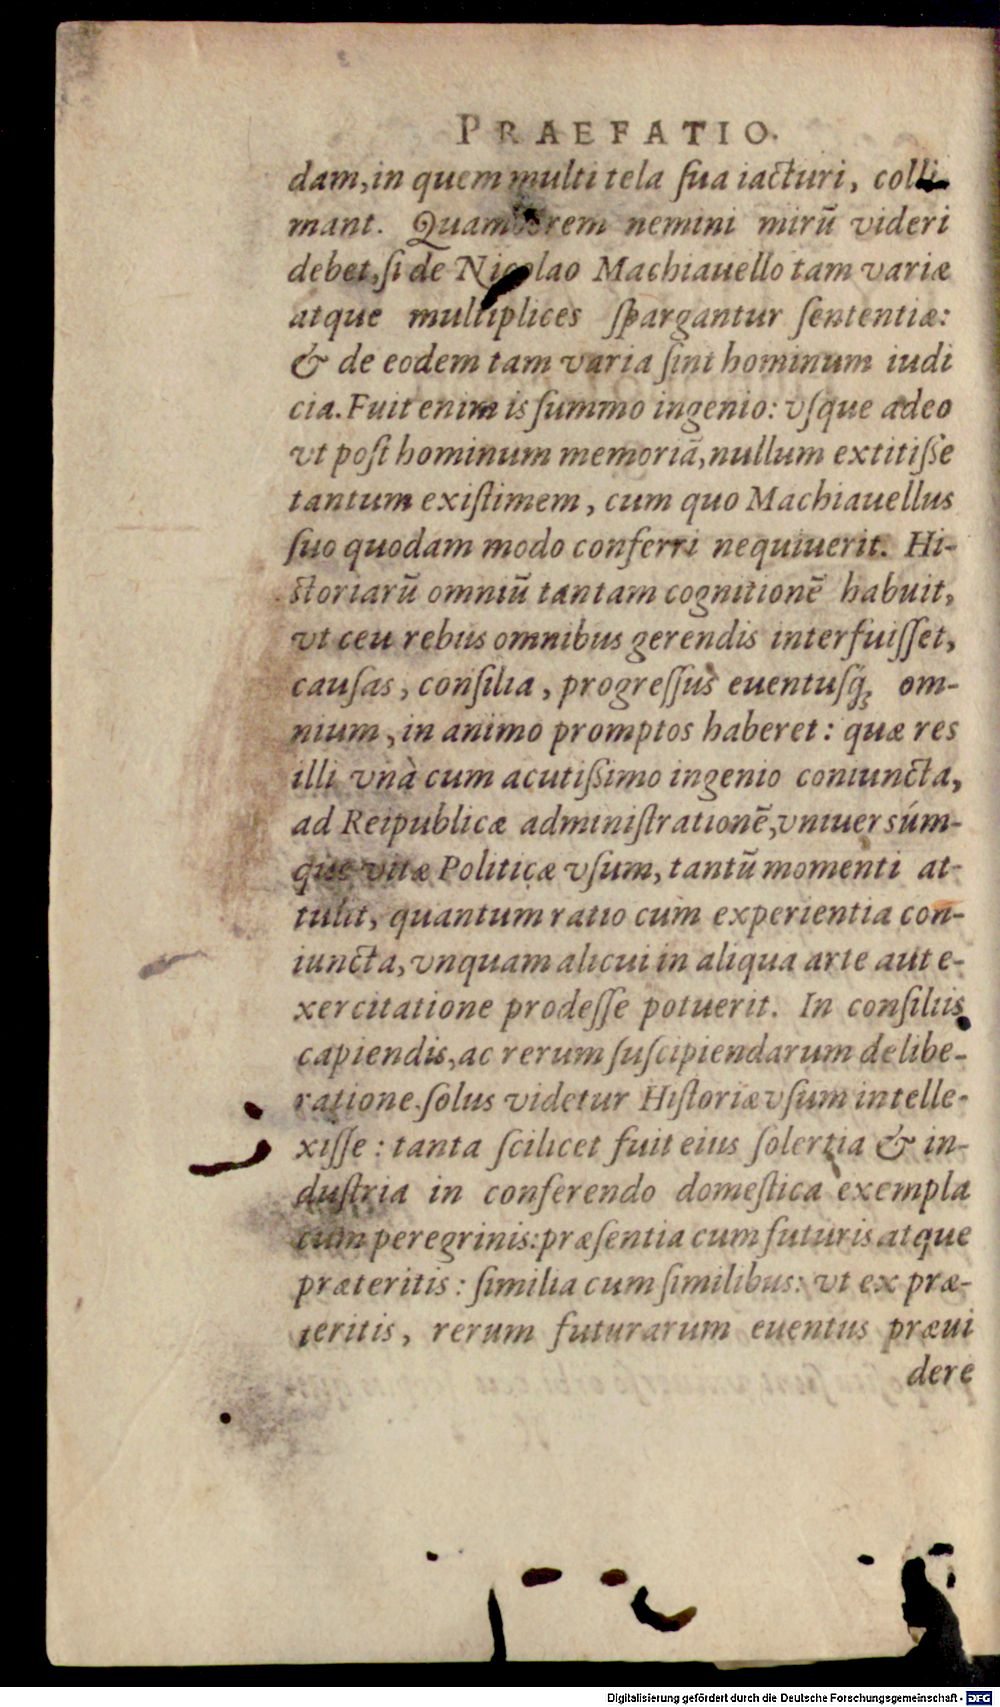 PRAEFATIO.
dam, in quem multi tela ſua iacturi, colli
mant. Quamobrem nemini mirū videri
debet, ſi de Nicolao Machiauello tam variæ
atque multiplices ſpargantur ſententiæ:
& de eodem tam varia ſint hominum iudi
cia. Fuit enim is ſummo ingenio: vſque adeo
vt poſt hominum memoriā, nullum extitiſſe
tantum exiſtimem, cum quo Machiauellus
ſuo quodam modo conferri nequiuerit. Hi-
ſtoriarū omniū tantam cognitionē habuit,
vt ceu rebus omnibus gerendis interfuiſſet,
cauſas, conſilia, progreſſus euentuſq́; om-
nium, in animo promptos haberet: quæ res
illi vnà cum acutiſsimo ingenio coniuncta,
ad Reipublicæ adminiſtrationē, vniuersúm-
que vitæ Politicæ vſum, tantū momenti at-
tulit, quantum ratio cum experientia con-
iuncta, vnquam alicui in aliqua arte aut e-
xercitatione prodeſſe potuerit. In conſiliis
capiendis, ac rerum ſuſcipiendarum delibe-
ratione ſolus videtur Hiſtoriæ vſum intelle-
xiſſe: tanta ſcilicet fuit eius ſolertia & in-
duſtria in conferendo domeſtica exempla
cum peregrinis: præſentia cum futuris atque
præteritis: ſimilia cum ſimilibus: vt ex præ-
teritis, rerum futurarum euentus præui
dere
Digitalisierung gefördert durch die Deutsche Forschungsgemeinschaft - DFG